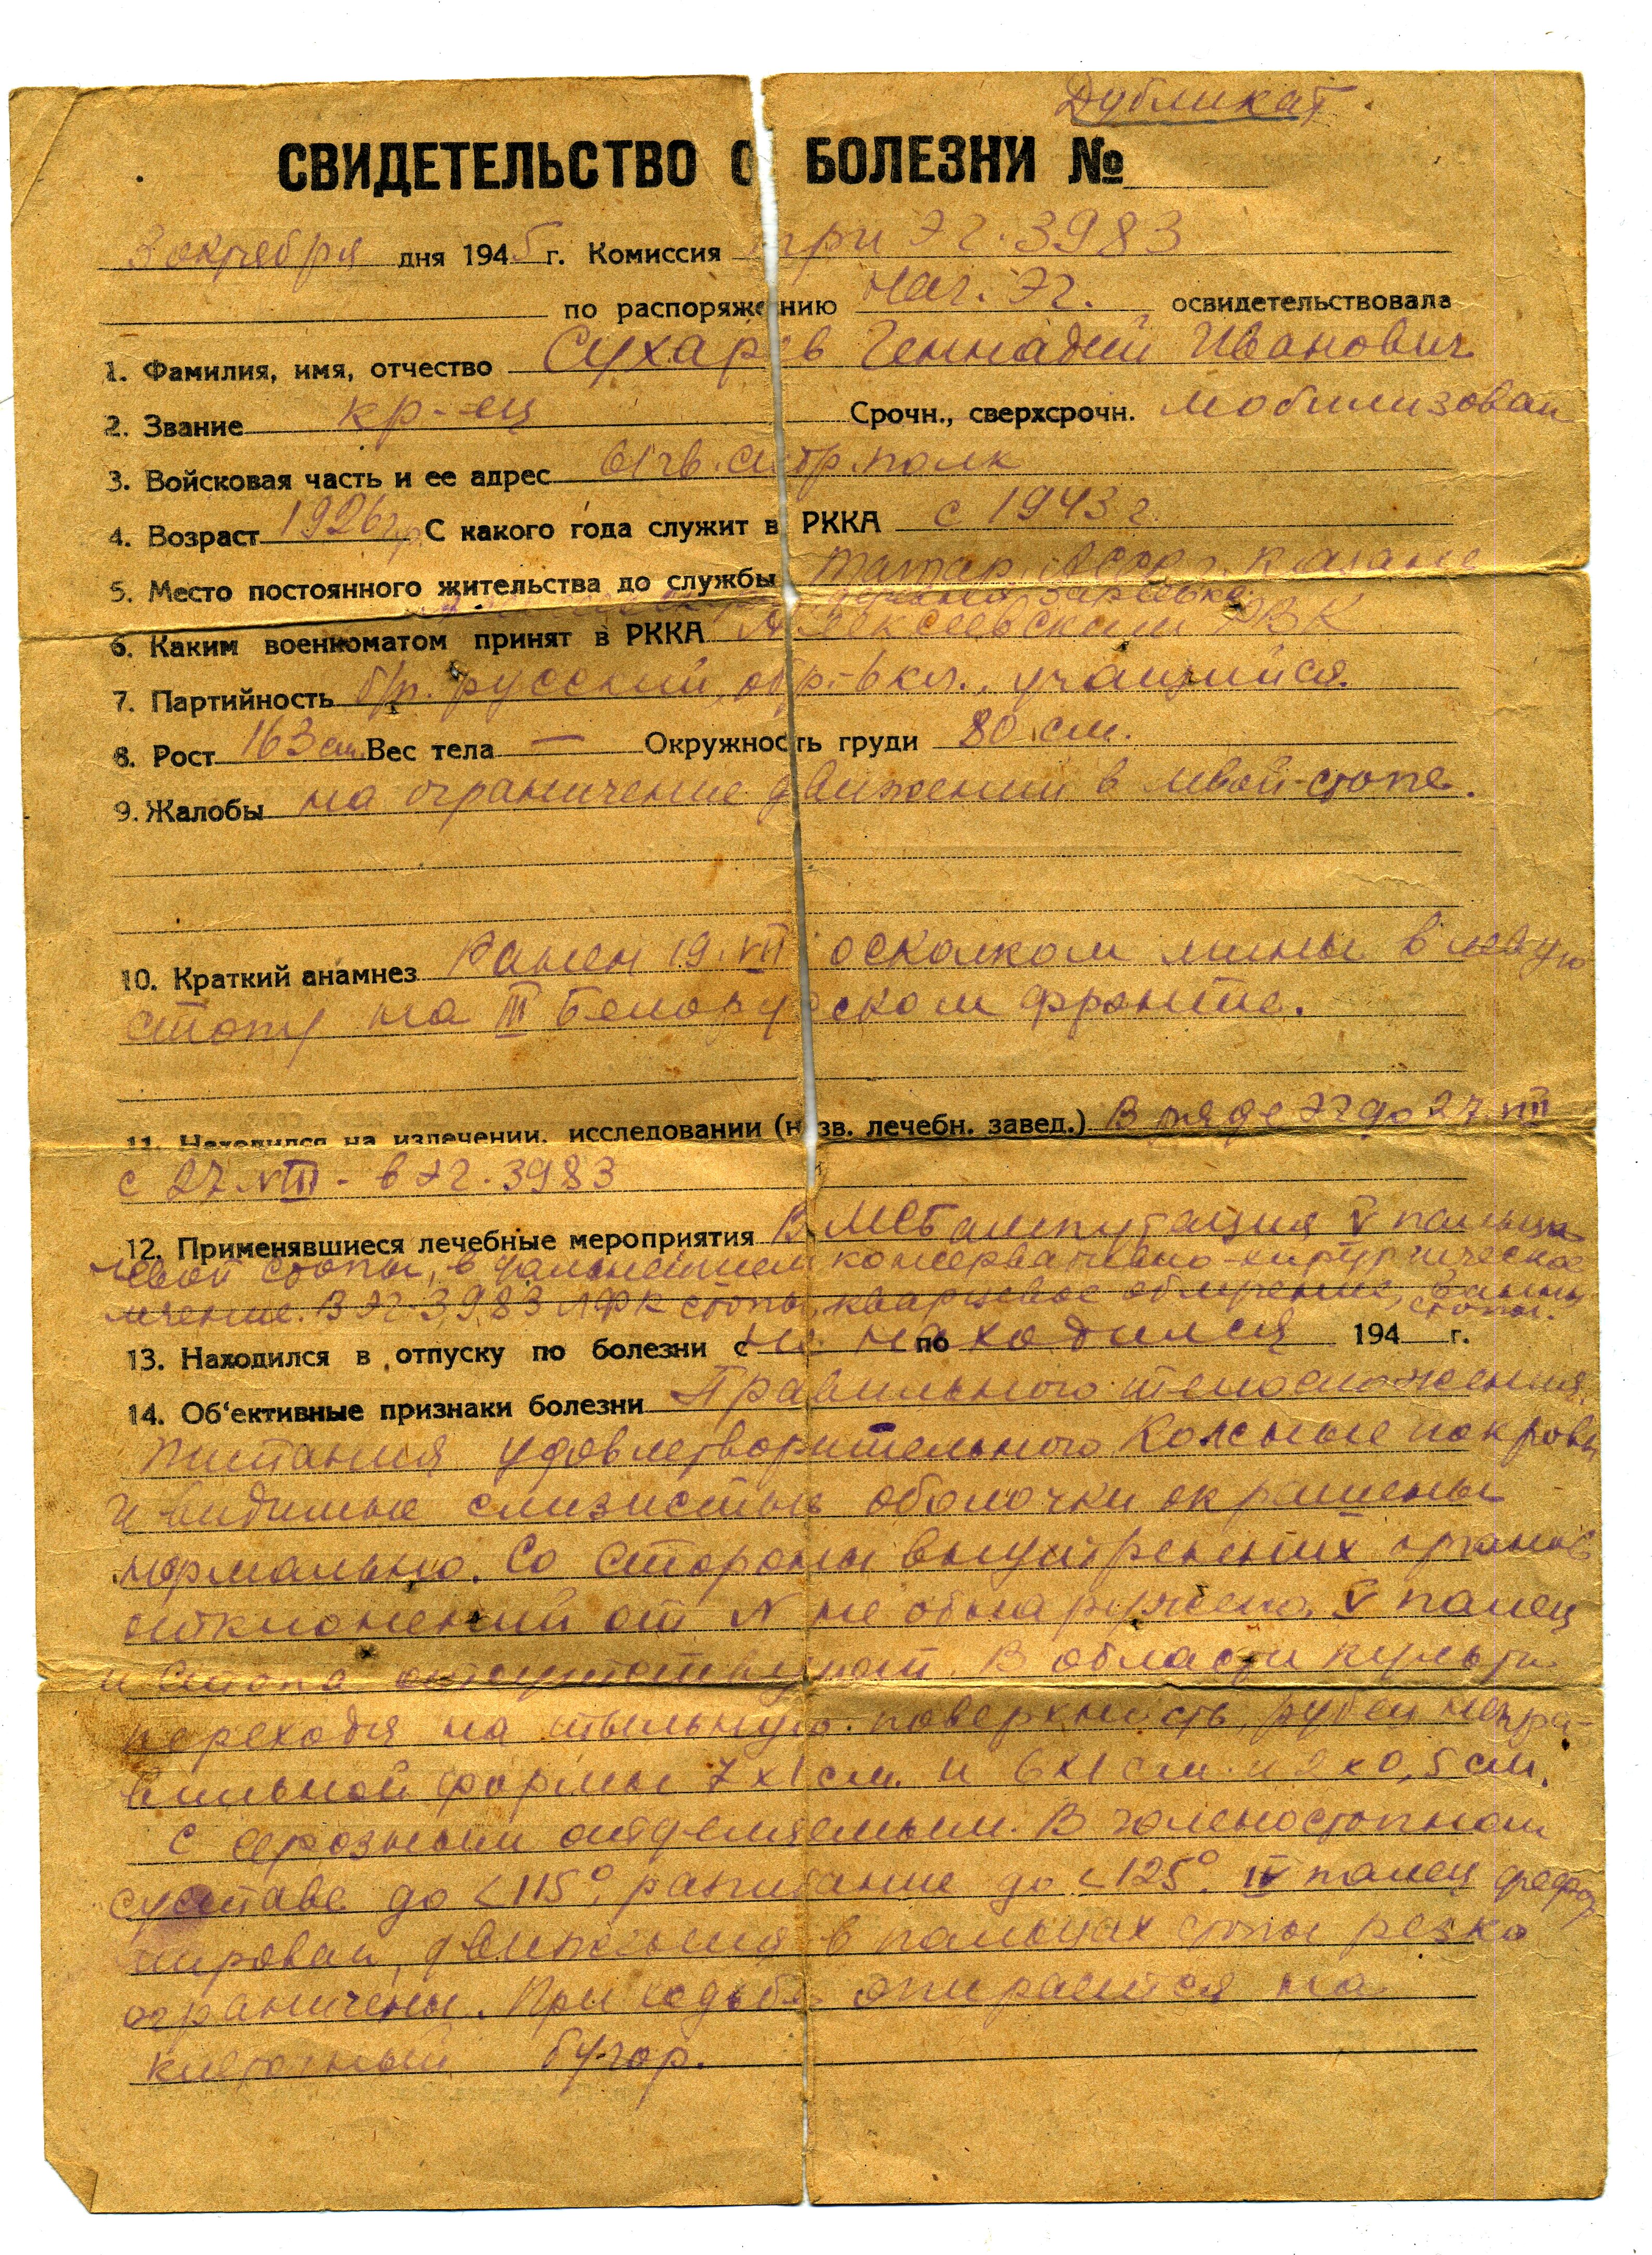 Дубликат.
СВИДЕТЕЛЬСТВО О БОЛЕЗНИ №
3 октября дня 1945 г. Комиссия при ЭГ. 3983
по распоряжению Нач. ЭГ. освидетельствовала
1. Фамилия, имя, отчество Сухарев Геннадий Иванович
2. Звание кр-ец Срочн., сверхсрочн. мобилизован
3. Войсковая часть и ее адрес 61 гв. стр. полк
4. Возраст 1926 г.р. С какого года служит в РККА с 1943 г.
5. Место постоянного жительства до службы Татар. АССР г. Казань
деревня
6. Каким военкоматом принят в РККА Алексеевским РВК
7. Партийность б/п. русский, обр-6 кл., учащийся.
8. Рост 163 см. Вес тела — Окружность груди 80 см.
9. Жалобы на ограничение движений в левой стопе.
10. Краткий анамнез Ранен 19. VII осколком мины в левую
стопу на III Белорусском фронте.
11. Находился на излечении, исследовании (назв. лечебн. завед.) В ряде ЭГ до 27. VIII
с 27. VIII - в ЭГ. 3983
12. Применявшиеся лечебные мероприятия В МСБ ампутация V пальца
левой стопы, в дальнейшем консервативно-хирургическое
лечение. В ЭГ-3983 ЛФК стопы, кварцевое облучение, ванны
стопы.
13. Находился в отпуску по болезни с не по находился 194 г.
14. Об'ективные признаки болезни Правильного телосложения.
Питания удовлетворительного Кожные покровы
и видимые слизистые оболочки окрашены
нормально. Со стороны внутренних органов
отклонений от N не обнаружено. V палец
и стопа отсутствуют. В области культи
переходя на тыльную поверхность рубец непра-
вильной формы 7х1 см. и 6х1 см. и 2х0,5 см.
с серозным отделяемым. В голеностопном
суставе до <115°, разгибание до <125°. IV палец дефор
мирован, движения в пальцах стопы резко
ограничены. При ходьбе опирается на
пяточный бугор.